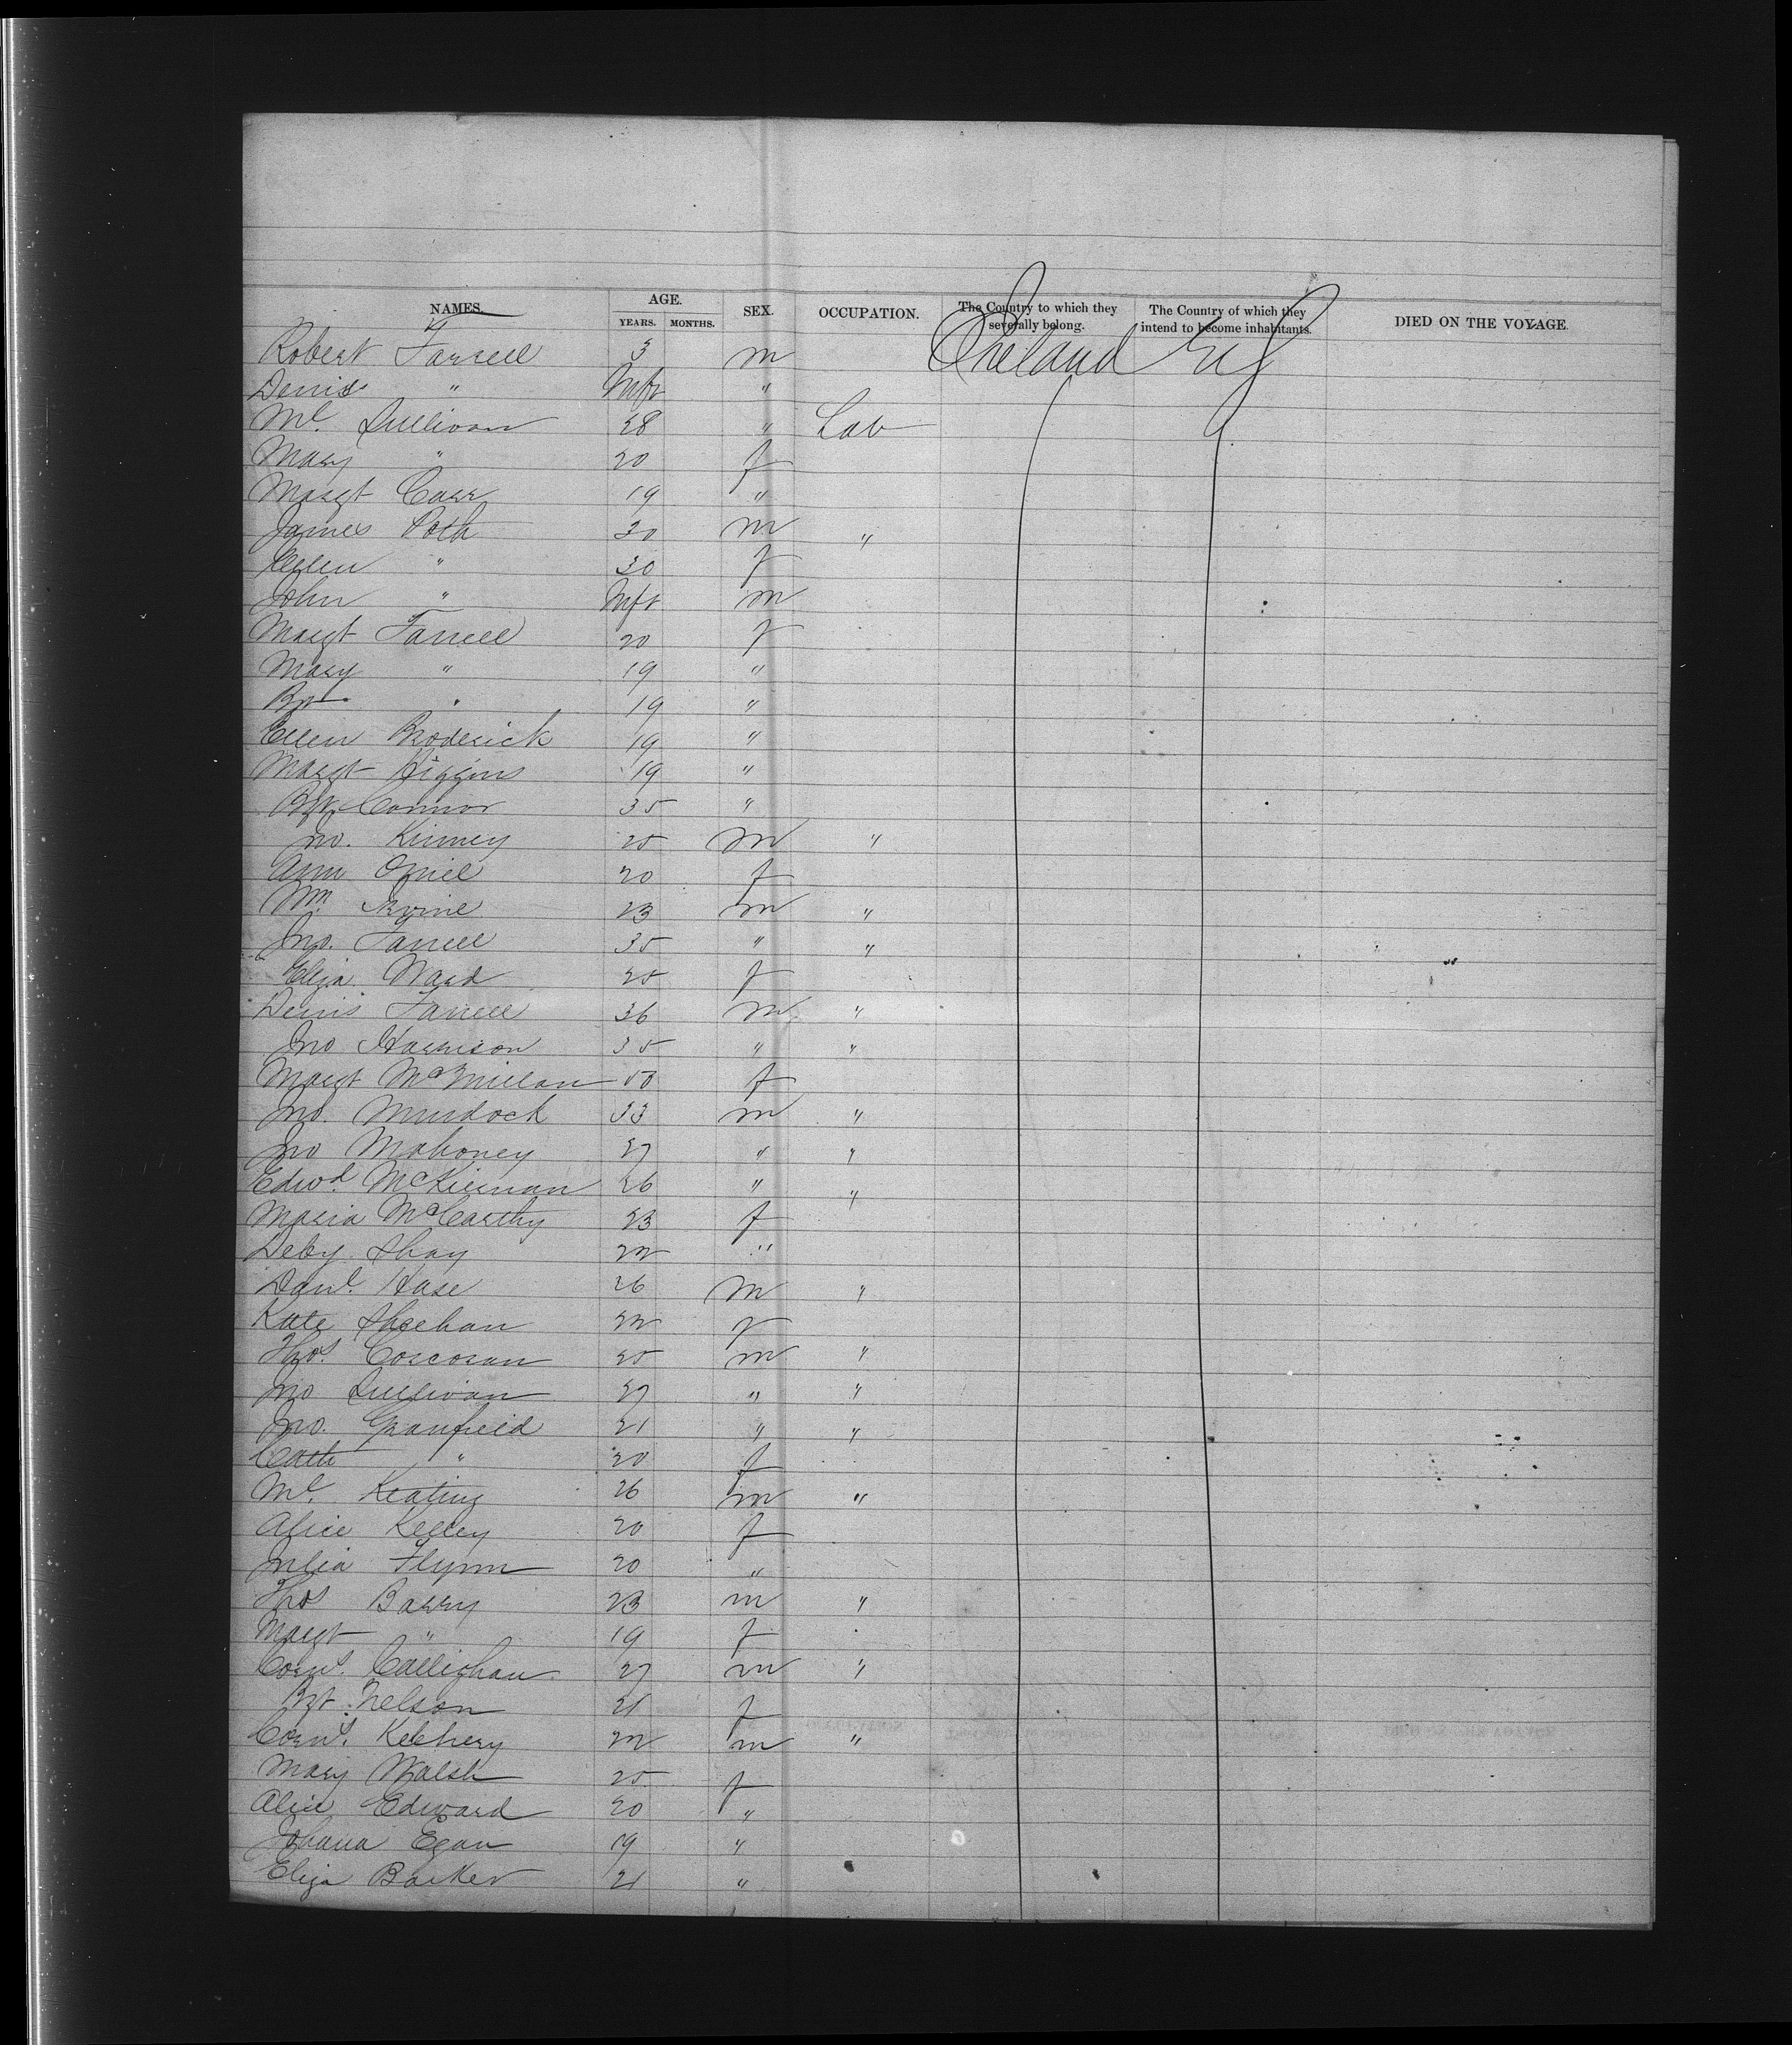 NAMES. AGE. SEX. OCCUPATION. The Country to which they severally belong. The Country of which they intend to become inhabitants. DIED ON THE VOYAGE.
YEARS. MONTHS.
Robert Farrell 3 m Ireland US
Denis " Inft "
Ml. Sullivan 28 " Lab
Mary " 20 f
Margt Carr 19 "
James Roth 30 m "
Ellen " 30 f
John " Inft m
Margt Farrell 20 f
Mary " 19 "
Bgt " 19 "
Ellen Broderick 19 "
Margt Higgins 19 "
Bgt Connor 35 "
Jno. Kinney 25 m "
Ann Oniel 20 f
Wm Irvine 23 m "
Jno. Farrell 35 " "
Eliza Ward 25 f
Denis Farrell 36 m "
Jno Harrison 35 " "
Margt McMillan f
Jno. Murdock 33 m "
Jno Mahoney 27 " "
Edwd McKiernan 26 " "
Maria McCarthy 23 f
Deby Shay 22 "
Danl. Hase 26 m "
Kate Sheehan 22 f
Thos. Corcoran 25 m "
Jno Sullivan 27 " "
Jno. Granfield 21 " "
Cath " 20 f
Ml. Keating 26 m "
Alice Kelley 20 f
Julia Flynn 20 "
Thos Barry 23 m "
Margt " 19 f
Corns. Callighan 27 m "
Bgt Nelson 21 f
Corns. Kelehery 22 m "
Mary Walsh 25 f
Alice Edward 20 "
Johana Egan 19 "
Eliza Barker 21 "